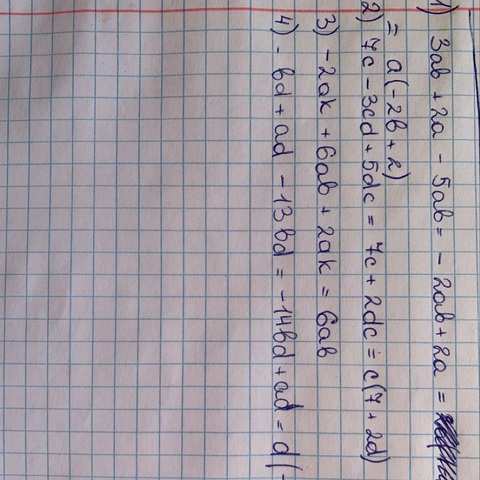 1) 3ab + 2a - 5ab = - 2ab + 2a =
= a(-2b + 2)
2) 7c - 3cd + 5dc = 7c + 2dc = c(7 + 2d)
3) - 2ak + 6ab + 2ak = 6ab
4) - bd + ad - 13bd = -14bd + ad = d(-